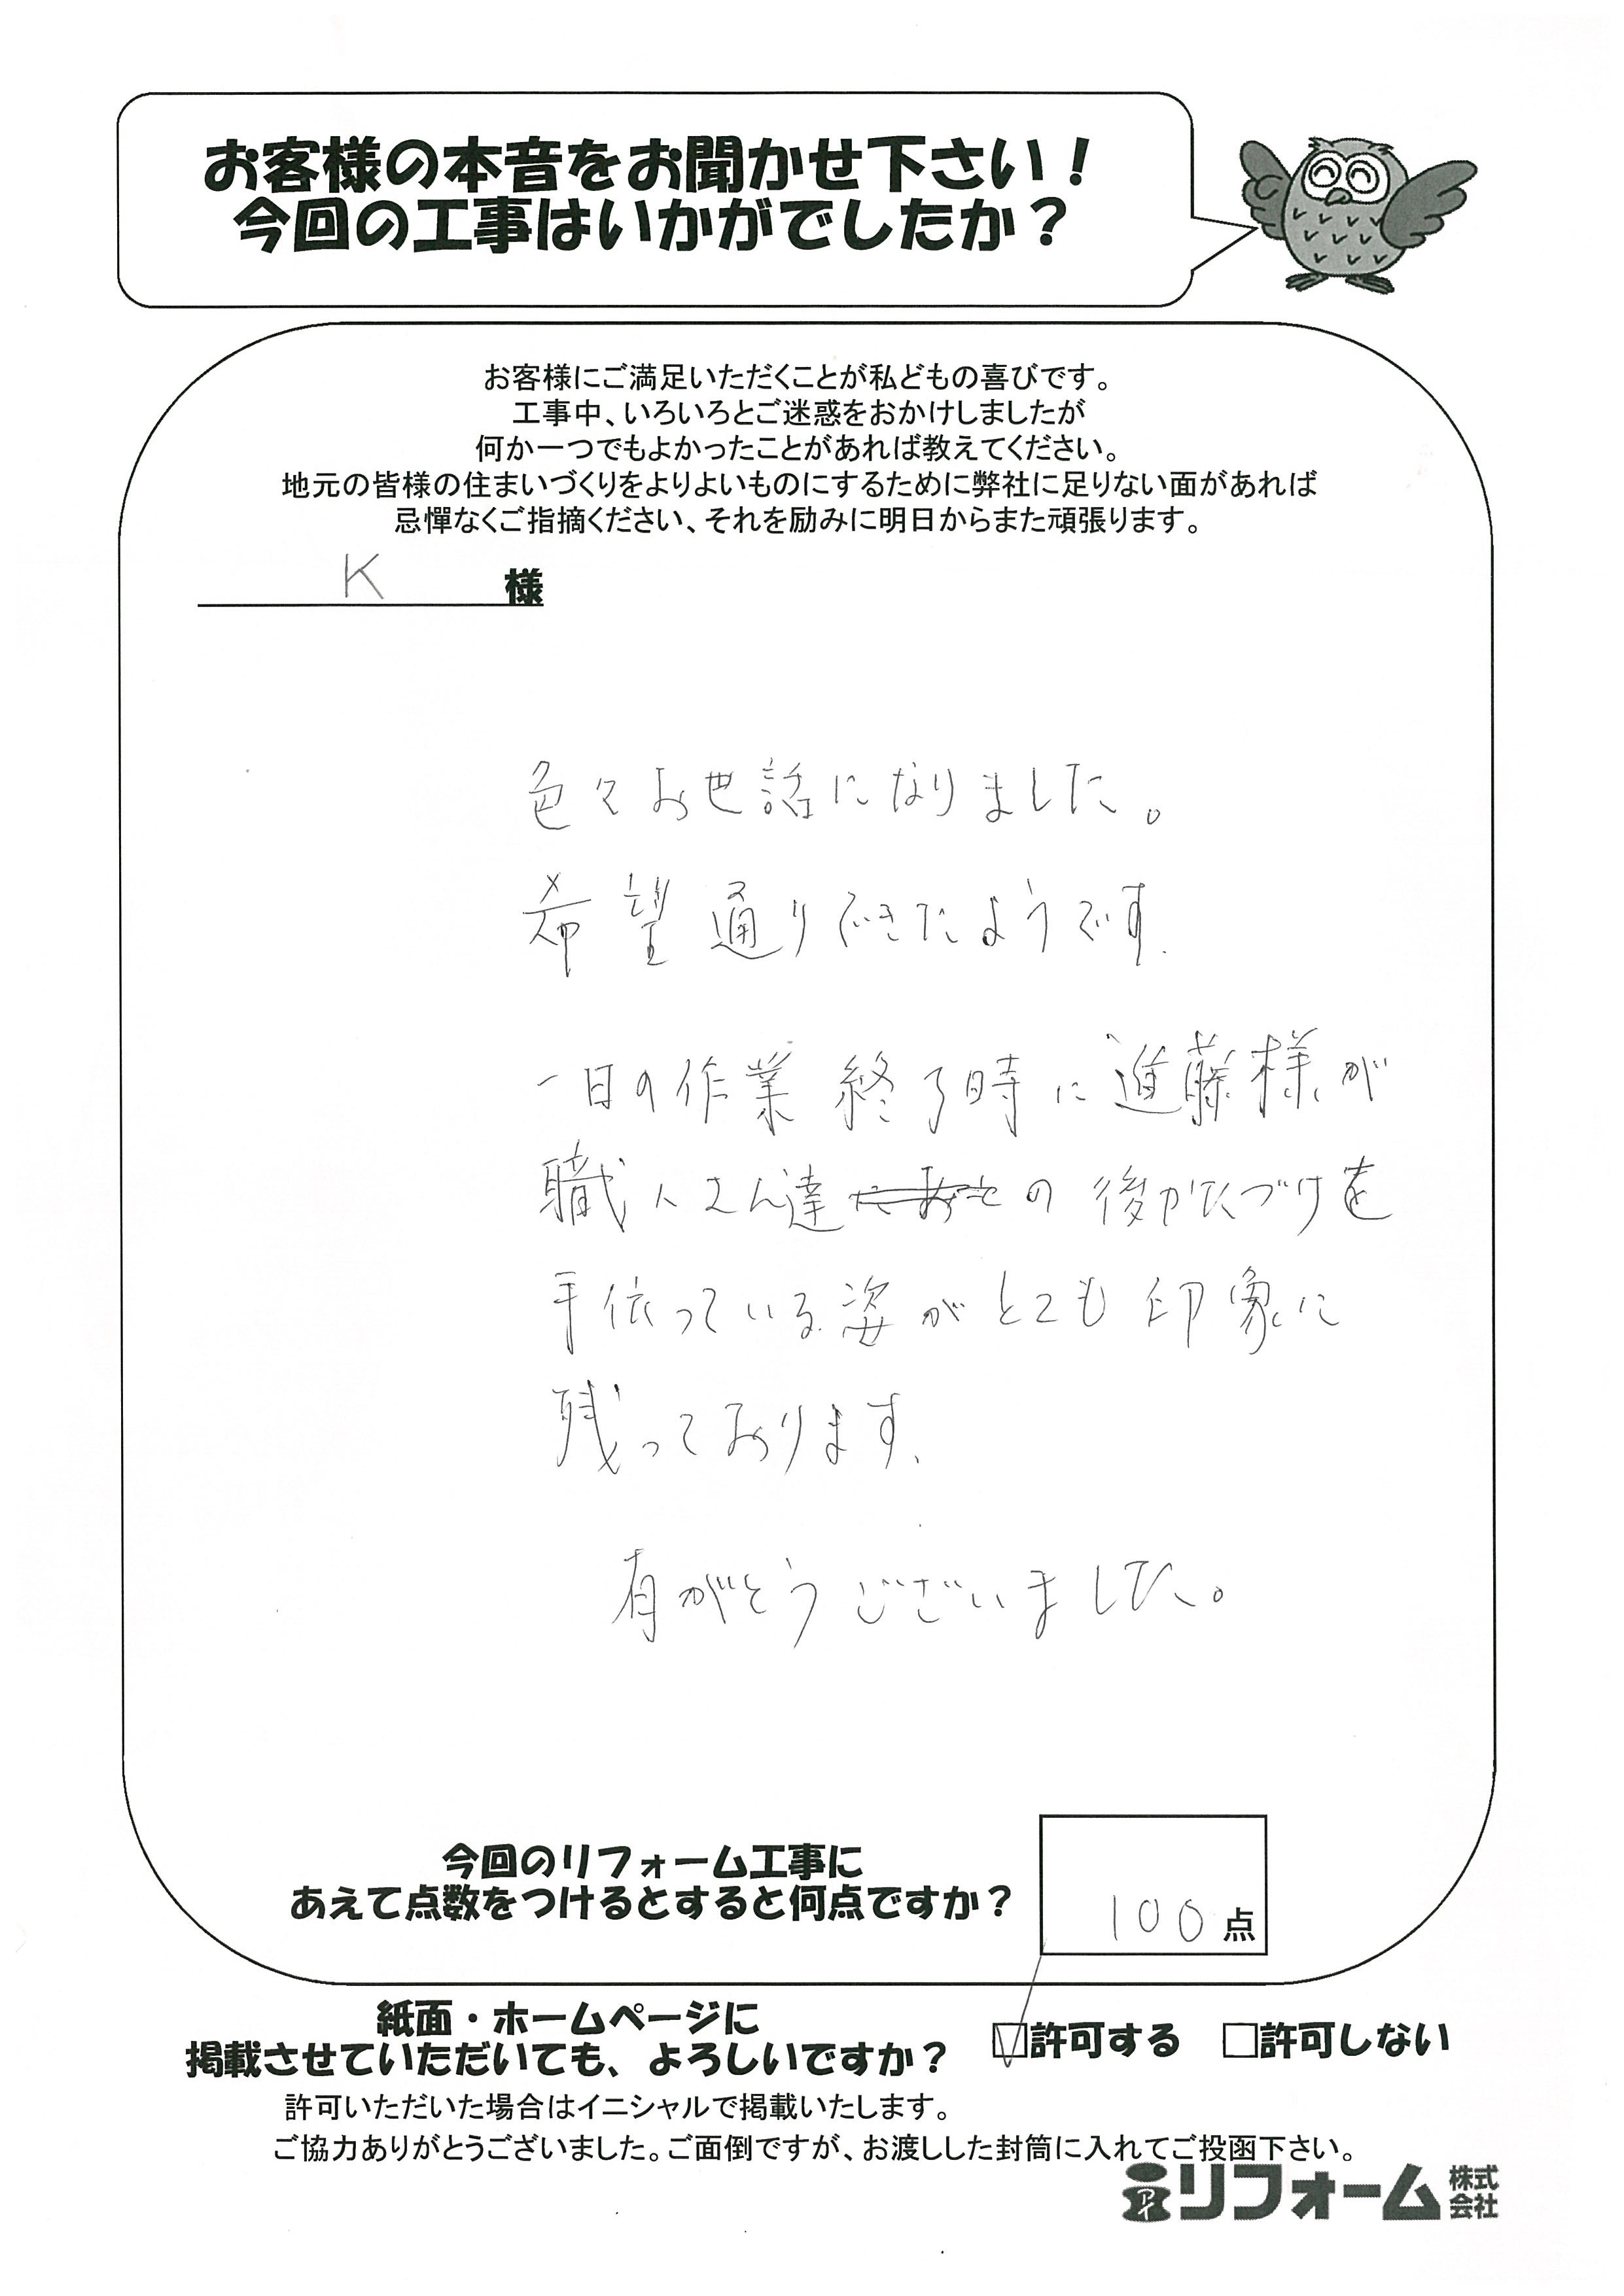 お客様の本音をお聞かせ下さい！
今回の工事はいかがでしたか？
お客様にご満足いただくことが私どもの喜びです。
工事中、いろいろとご迷惑をおかけしましたが
何か一つでもよかったことがあれば教えてください。
地元の皆様の住まいづくりをよりよいものにするために弊社に足りない面があれば
忌憚なくご指摘ください、それを励みに明日からまた頑張ります。
K 様
色々お世話になりました。
希望通りできたようです.
一日の作業終了時に進藤様が
職人さん達の後かたづけを
手依っている姿がとても印象に
残っております.
有がとうございました。
今回のリフォーム工事に
あえて点数をつけるとすると何点ですか？
100点
紙面・ホームページに
掲載させていただいても、よろしいですか？
☑許可する □許可しない
許可いただいた場合はイニシャルで掲載いたします。
ご協力ありがとうございました。ご面倒ですが、お渡しした封筒に入れてご投函下さい。
リフォーム株式会社